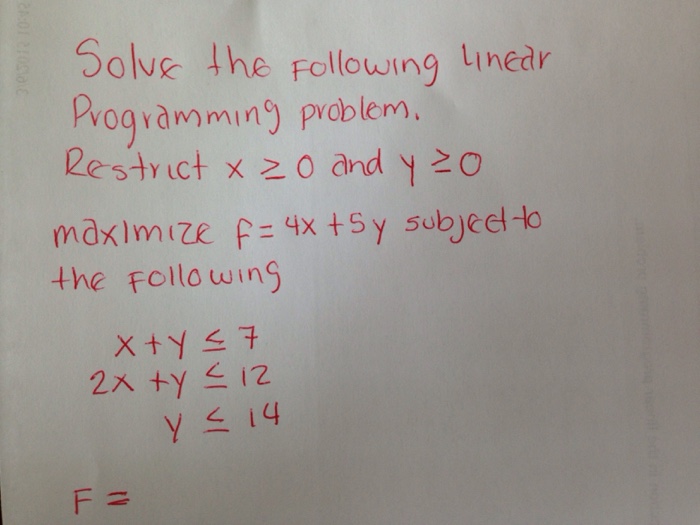 Solve the Following linear
Programming problem.
Restrict x ≥ 0 and y ≥ 0
maximize f = 4x + 5y subject to
the Following
x + y ≤ 7
2x + y ≤ 12
y ≤ 14
F =